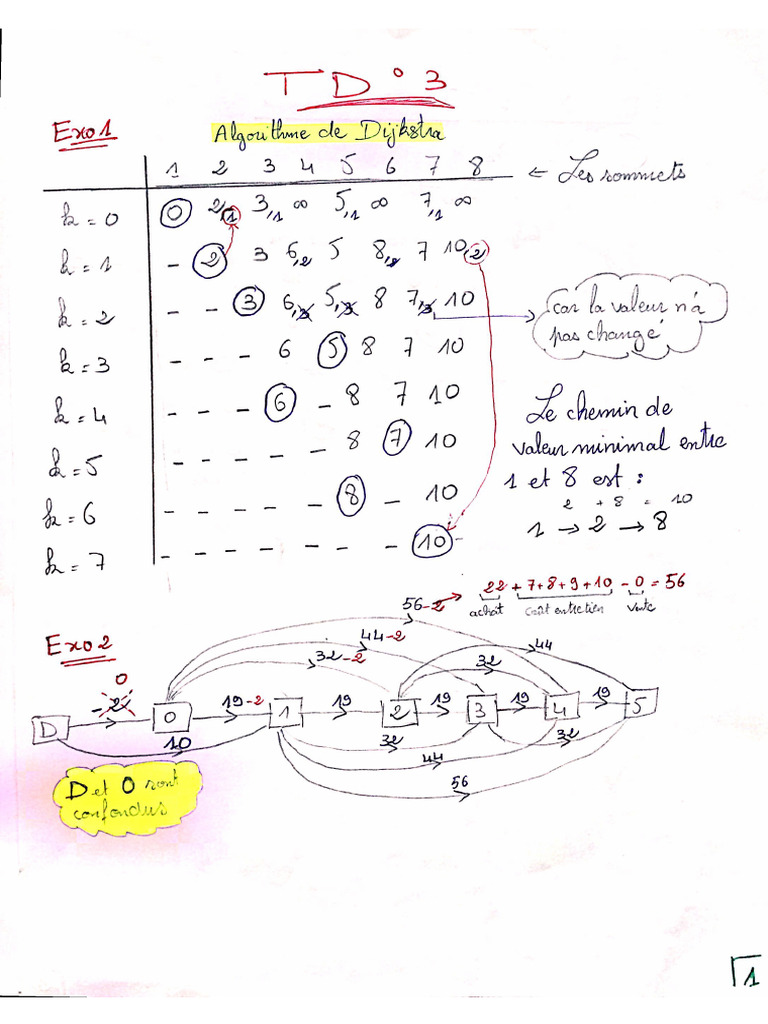 TD°3
Exo1
Algorithme de Dijkstra
1 2 3 4 5 6 7 8 ← Les sommets
k=0 0 2,1 3,1 ∞ 5,1 ∞ 7,1 ∞
k=1 - 2 3 6,2 5 8,2 7 10,2
k=2 - - 3 6,3 5,3 8 7,3 10
car la valeur n'a
pas changé
k=3 - - - 6 5 8 7 10
k=4 - - - 6 - 8 7 10
k=5 - - - - - 8 7 10
k=6 - - - - - 8 - 10
k=7 - - - - - - - 10
Le chemin de
valeur minimal entre
1 et 8 est :
2 + 8 = 10
1 → 2 → 8
56-2 → 22+7+8+9+10-0=56
achat coût entretien vente
Exo2
44-2
32-2
44
32
0
-2
19-2 19 19 19 19
D 0 1 2 3 4 5
10
32
32
44
56
D et 0 sont
confondus
1